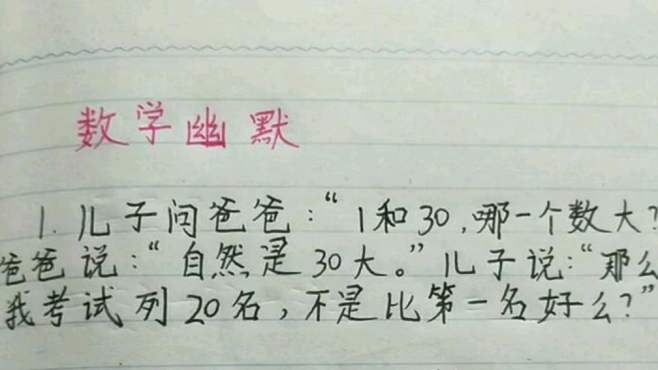 数学幽默
1. 儿子问爸爸:“1和30,哪一个数大?
爸爸说:“自然是30大。”儿子说:“那么
我考试列20名,不是比第一名好么?”